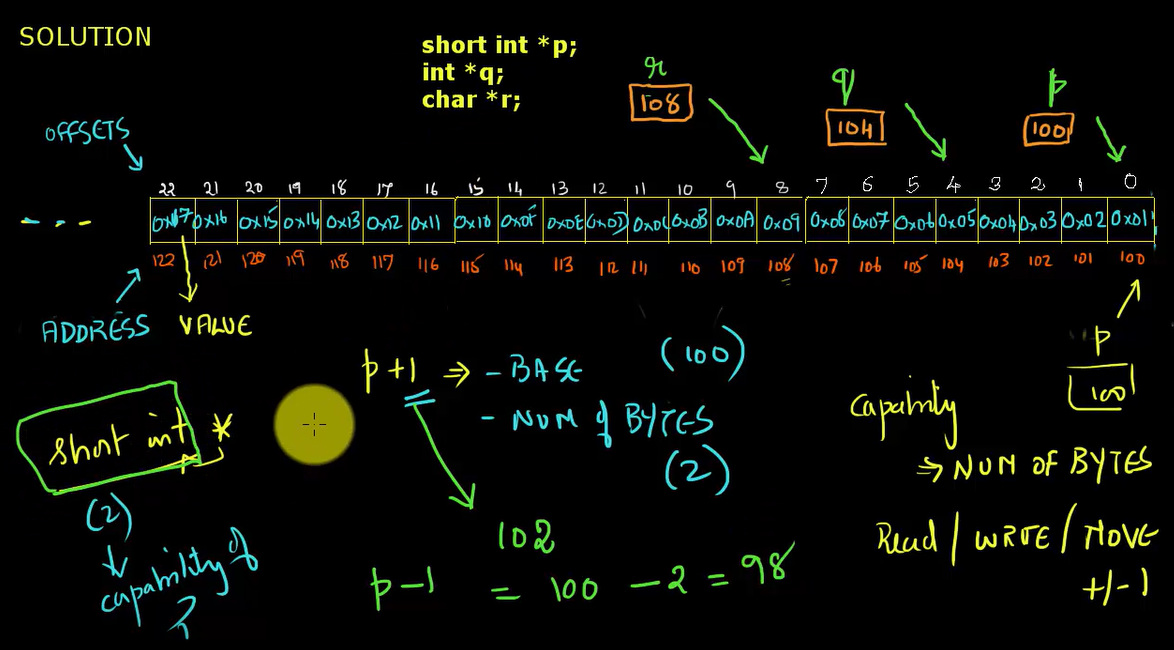 SOLUTION
short int *p;
int *q;
char *r;
r
108
q
104
p
100
OFFSETS
22 21 20 19 18 17 16 15 14 13 12 11 10 9 8 7 6 5 4 3 2 1 0
0x17 0x16 0x15 0x14 0x13 0x12 0x11 0x10 0x0F 0x0E 0x0D 0x0C 0x0B 0x0A 0x09 0x08 0x07 0x06 0x05 0x04 0x03 0x02 0x01
122 121 120 119 118 117 116 115 114 113 112 111 110 109 108 107 106 105 104 103 102 101 100
ADDRESS VALUE
p+1 ⇒ - BASE (100)
- NUM of BYTES
(2)
102
p-1 = 100 - 2 = 98
short int *
(2)
capability of
?
p
100
Capability
⇒ NUM OF BYTES
Read / WRITE / MOVE
+/- 1